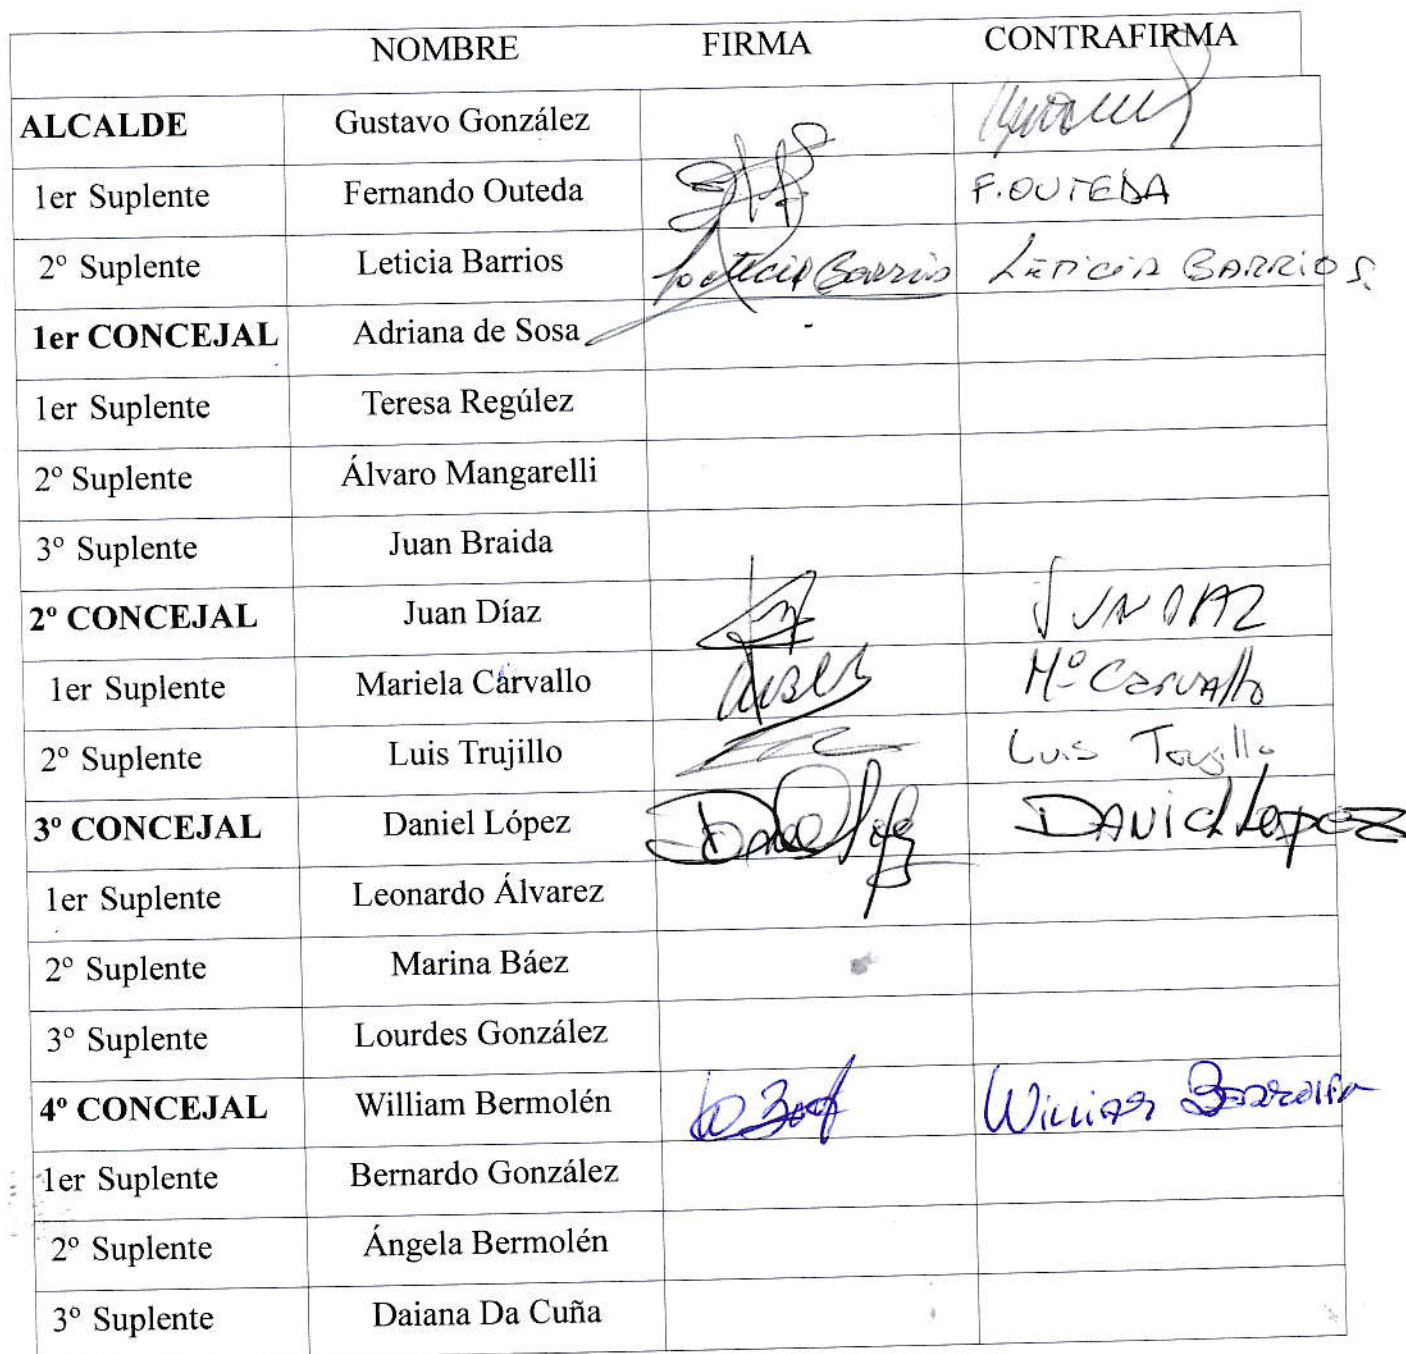 NOMBRE FIRMA CONTRAFIRMA
ALCALDE Gustavo González
1er Suplente Fernando Outeda F. OUTEDA
2º Suplente Leticia Barrios Leticia Barrios LETICIA BARRIOS.
1er CONCEJAL Adriana de Sosa -
1er Suplente Teresa Regúlez
2º Suplente Álvaro Mangarelli
3º Suplente Juan Braida
2º CONCEJAL Juan Díaz JUN DIAZ
1er Suplente Mariela Carvallo Mº Carvallo
2º Suplente Luis Trujillo Luis Trujillo
3º CONCEJAL Daniel López DANIEL LOPEZ
1er Suplente Leonardo Álvarez
2º Suplente Marina Báez
3º Suplente Lourdes González
4º CONCEJAL William Bermolén William
1er Suplente Bernardo González
2º Suplente Ángela Bermolén
3º Suplente Daiana Da Cuña